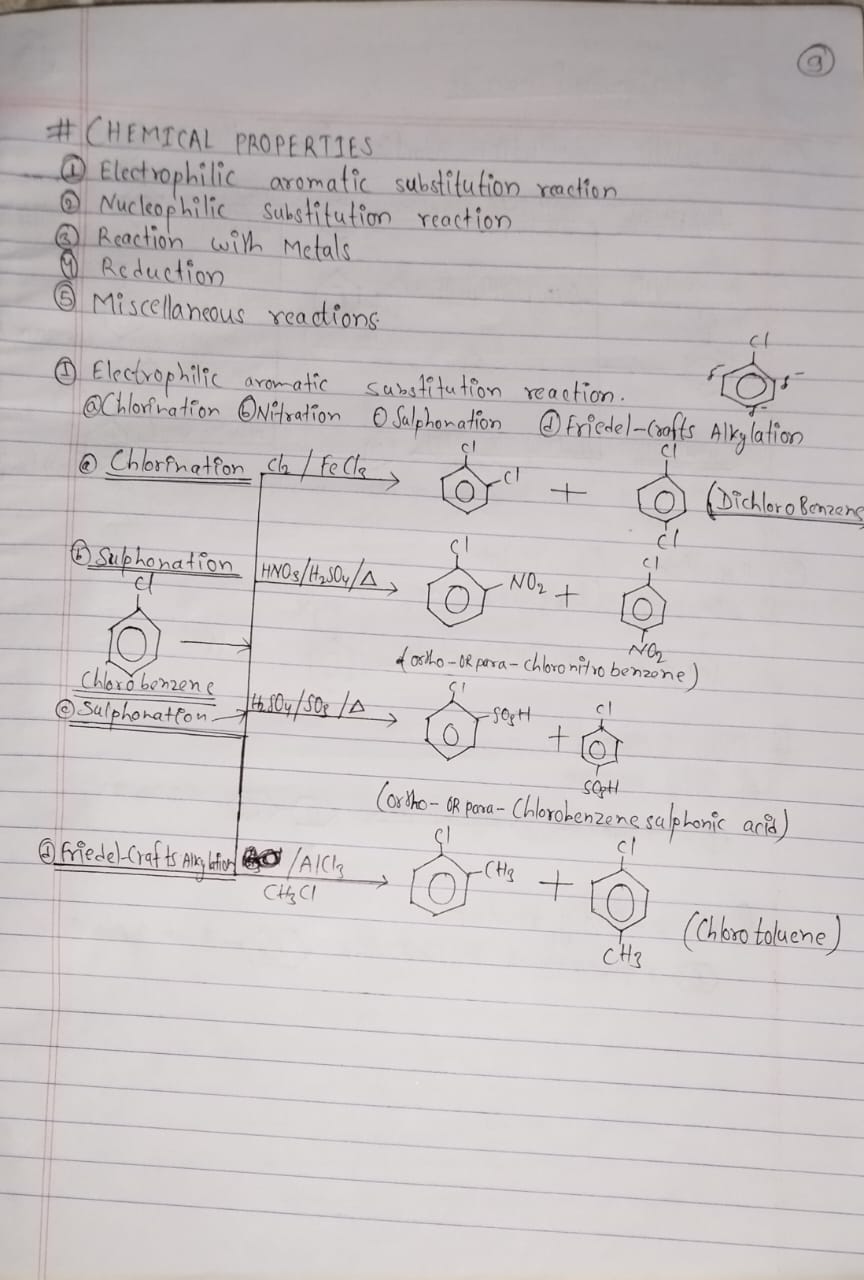 9
# CHEMICAL PROPERTIES
① Electrophilic aromatic substitution reaction
② Nucleophilic substitution reaction
③ Reaction with Metals
④ Reduction
⑤ Miscellaneous reactions
Cl
① Electrophilic aromatic substitution reaction.
δ- δ-
δ-
ⓐ Chlorination ⓑ Nitration ⓒ Sulphonation ⓓ Friedel-Crafts Alkylation
ⓐ Chlorination Cl2 / FeCl3 Cl Cl + Cl Cl (Dichloro Benzene
ⓑ Sulphonation HNO3/H2SO4/Δ Cl NO2 + Cl NO2
Cl
(ortho-OR para-chloronitrobenzene)
Chlorobenzene
ⓒ Sulphonation H2SO4/SO3/Δ Cl SO3H + Cl SO3H
(ortho- OR para- Chlorobenzene sulphonic acid)
ⓓ Friedel-Crafts Alkylation /AlCl3 Cl CH3 + Cl CH3 (Chlorotoluene)
CH3Cl